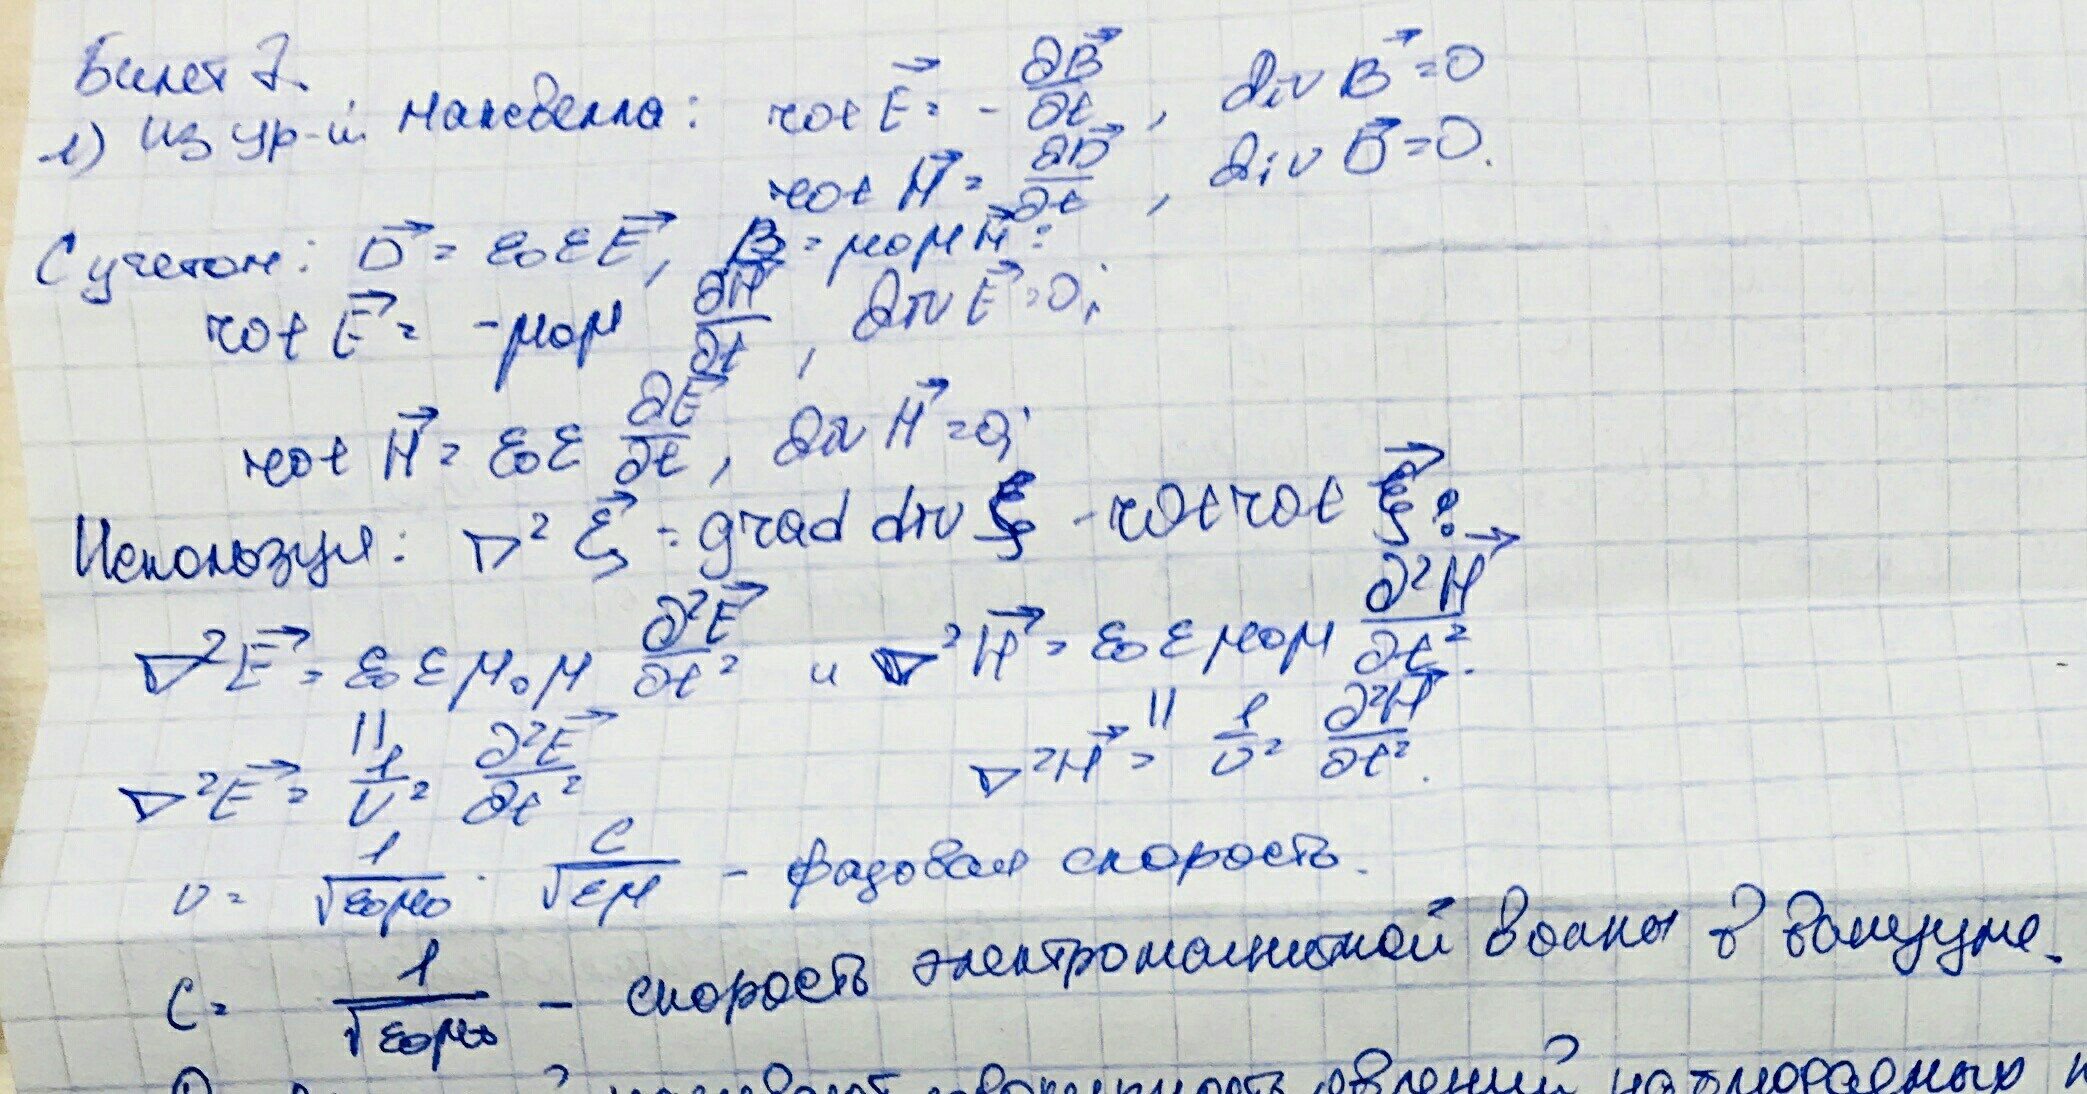 Билет 7.
1) Из ур-й Максвелла: rot E⃗ = - ∂B⃗/∂t, div B⃗ = 0
rot H⃗ = ∂D⃗/∂t, div B⃗ = 0.
С учетом: D⃗ = ε₀εE⃗, B⃗ = μ₀μH⃗:
rot E⃗ = -μ₀μ ∂H⃗/∂t, div E⃗ = 0;
rot H⃗ = ε₀ε ∂E⃗/∂t, div H⃗ = 0;
Используя: ∇² ξ⃗ = grad div ξ - rot rot ξ⃗:
∇²E⃗ = ε₀εμ₀μ ∂²E⃗/∂t² и ∇²H⃗ = ε₀εμ₀μ ∂²H⃗/∂t².
|| ||
∇²E⃗ = 1/υ² ∂²E⃗/∂t² ∇²H⃗ = 1/υ² ∂²H⃗/∂t².
υ = 1/√ε₀μ₀ · c/√εμ - фазовая скорость.
C = 1/√ε₀μ₀ - скорость электромагнитной волны в вакууме.
называют совокупность явлений